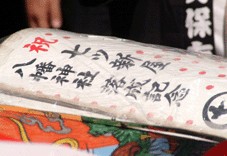 祝
七ツ新屋
八幡神社 落成記念